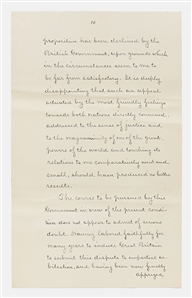 10
proposition has been declined by the
British Government, upon grounds which
in the circumstances seem to me to
be far from satisfactory. It is deeply
disappointing that such an appeal
actuated by the most friendly feelings
towards both nations directly concerned,
addressed to the sense of justice and
to the magnanimity of one of the great
powers of the world and touching its
relations to one comparatively weak and
small, should have produced no better
results.
The course to be pursued by this
Government in view of the present condi-
tion does not appear to admit of serious
doubt. Having labored faithfully for
many years to induce Great Britain
to submit this dispute to impartial ar-
bitration, and having been now finally
apprized